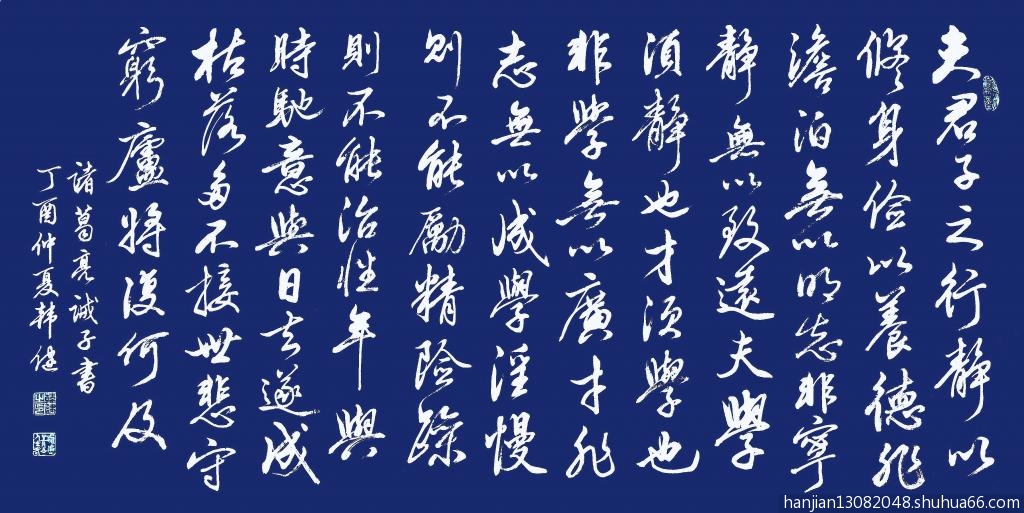 夫君子之行靜以
修身俭以養德非
澹泊無以明志非寧
靜無以致遠夫學
須靜也才须學也
非學無以廣才非
志無以成學淫慢
则不能勵精险躁
則不能治性年與
時馳意與日去遂成
枯落多不接世悲守
窮廬將復何及
諸葛亮诫子書
丁酉仲夏韩健
hanjian13082048.shuhua66.com